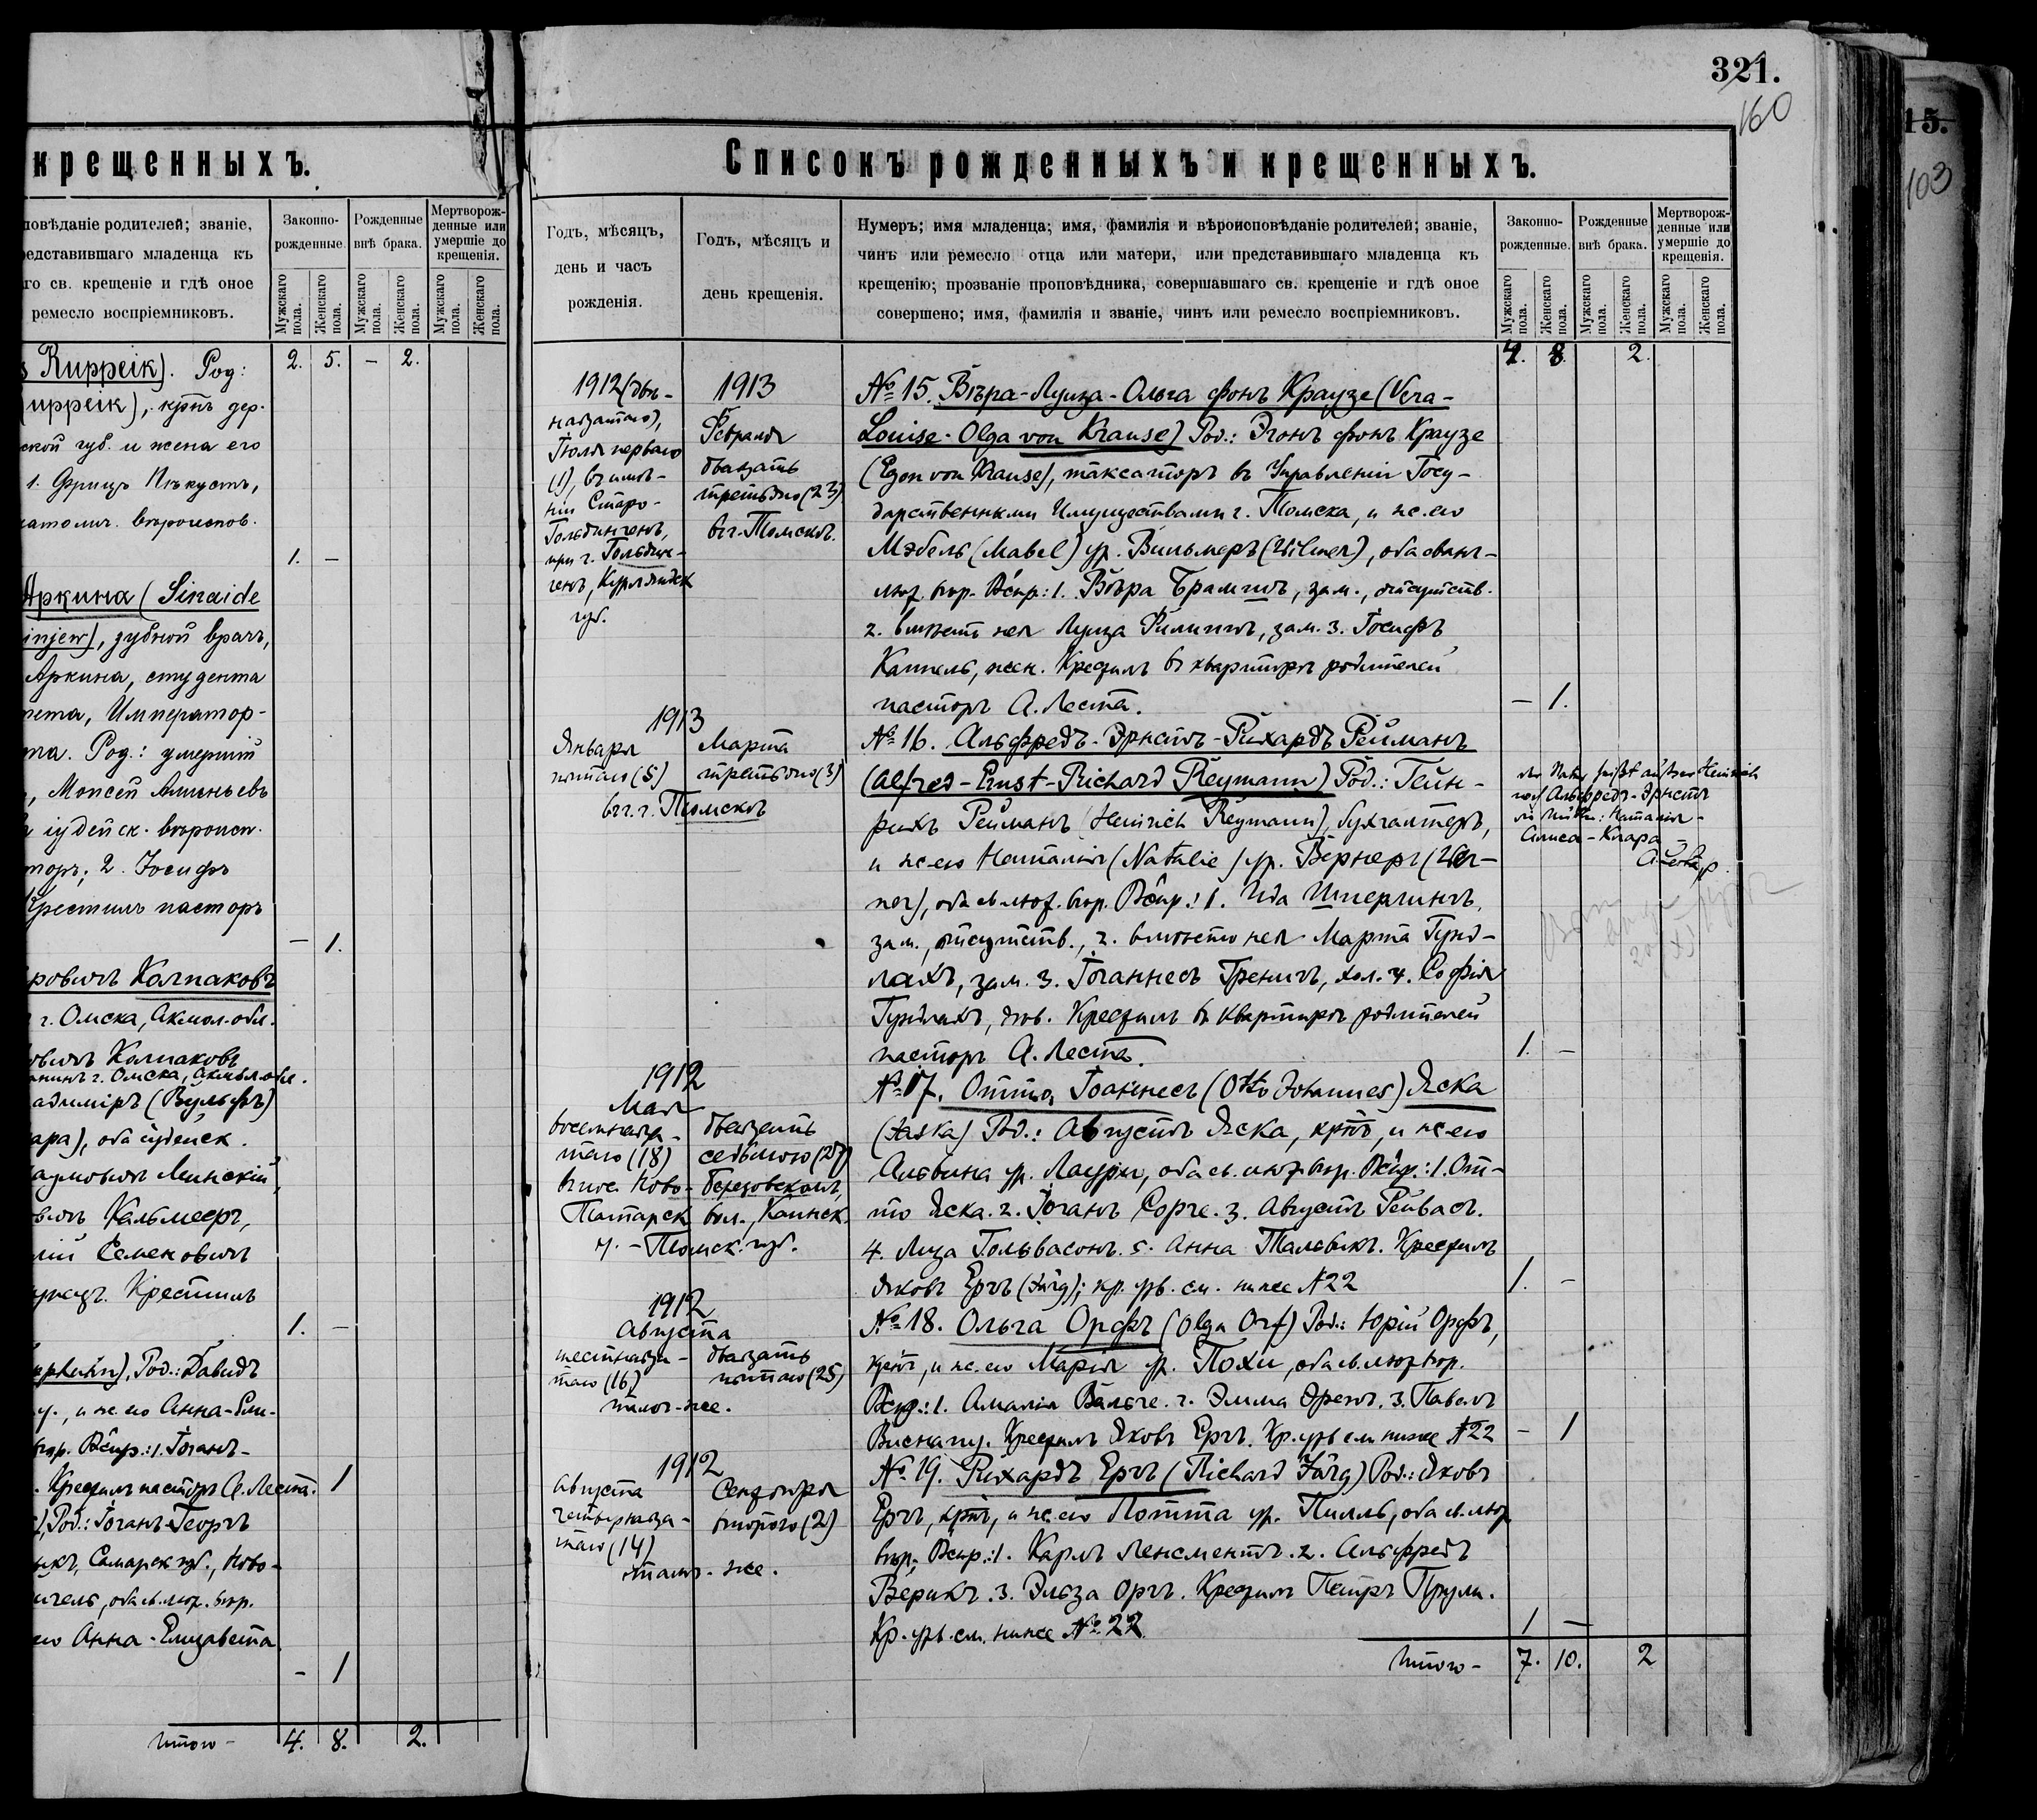 крещенныхъ.
повѣданіе родителей; званіе,
редставившаго младенца къ
го св. крещеніе и гдѣ оное
ремесло воспріемниковъ.
Законно-
рожденные.
Рожденные
внѣ брака.
Мертворож-
денные или
умершіе до
крещенія.
Мужскаго пола.
Женскаго пола.
Мужскаго пола.
Женскаго пола.
Мужскаго пола.
Женскаго пола.
2. 5. – 2.
Ruppeik). Род:
uppeik), крнъ дер.
ской губ. и жена его
1. Фрицъ
католич. вѣроиспов.
1. –
Аркина (Sinaide
injew), зубной врачъ,
Аркина, студента
тета, Император-
та. Род.: умершій
, Моисей
іудейск. вѣроисп.
торъ; 2. Іосифъ
Крестилъ пасторъ
– 1.
ровичъ Колпаковъ
г. Омска, Акмол. обл.
овичъ Колпаковъ
нинъ г. Омска, Акмол. обл.
адиміръ (Вульфъ)
ара), оба іудейск.
аумовичъ Минскій,
овичъ Кальмееръ,
лій Семеновичъ
Крестилъ
1. –
ppkuhn). Род.: Давидъ
у., и ж. его Анна-Ели-
вѣр. Вспр.: 1. Іоганъ-
. Крестилъ пасторъ А. Леста.
1
Род.: Іоганъ-Георгъ
Самарск. губ., Ново-
оба ев. лют. вѣр.
его Анна-Елизавета
– 1
Итого – 4. 8. 2.
321.
160
Списокъ рожденныхъ и крещенныхъ.
Годъ, мѣсяцъ,
день и часъ
рожденія.
Годъ, мѣсяцъ и
день крещенія.
Нумеръ; имя младенца; имя, фамилія и вѣроисповѣданіе родителей; званіе,
чинъ или ремесло отца или матери, или представившаго младенца къ
крещенію; прозваніе проповѣдника, совершавшаго св. крещеніе и гдѣ оное
совершено; имя, фамилія и званіе, чинъ или ремесло воспріемниковъ.
Законно-
рожденные.
Рожденные
внѣ брака.
Мертворож-
денные или
умершіе до
крещенія.
Мужскаго пола.
Женскаго пола.
Мужскаго пола.
Женскаго пола.
Мужскаго пола.
Женскаго пола.
4. 8. 2.
1912 (двѣ-
надцатаго),
Іюля перваго
(1), въ имѣ-
ніи Старо-
Гольдингенъ,
при г. Гольдин-
генъ, Курляндск
губ.
1913
Февраля
двадцать
третьяго (23)
въ г. Томскѣ.
№ 15. Вѣра-Луиза-Ольга фонъ Краузе (Vera-
Louise-Olga von Krause) Род.: Эгонъ фонъ Краузе
(Egon von Krause), таксаторъ въ Управленіи Госу-
дарственными Имуществами г. Томска, и ж. его
Мэбель (Mabel) ур. Вильмеръ (Wilmer), оба еванг-
лют. вѣр. Вспр.: 1. Вѣра зам., отсутств.
2. вмѣсто нея Луиза зам. 3. Іосифъ
Каппель, жен. Крестилъ въ квартирѣ родителей
пасторъ А. Леста.
– 1.
1913
Января
пятаго (5)
Марта
третьяго (3)
въ г. Томскѣ
№ 16. Альфредъ-Эрнстъ-Рихардъ Рейманъ
(Alfred-Ernst-Richard Reymann) Род.: Гейн-
рихъ Рейманъ (Heinrich Reymann), бухгалтеръ,
и ж. его Наталія (Natalie) ур. Вернеръ (Wer-
ner), оба ев. лют. вѣр. Вспр.: 1. Ида
зам., отсутств., 2. вмѣсто нея Марта Гунд-
лахъ, зам. 3. Іоганнесъ хол. 4. Софія
Гундлахъ, дѣв. Крестилъ въ квартирѣ родителей
пасторъ А. Леста.
1. –
der Vater heißt außer Heinrich
noch Альфредъ-Эрнстъ
die Mutter: Наталія-
Алиса-Клара
1912
Мая
восемнадца-
таго (18)
двадцать
седьмого (27)
въ пос. Ново-Березовскомъ,
Татарск. вол., Каинск.
у. – Томск. губ.
№ 17. Отто, Іоаннесъ (Otto Johannes) Яска
(Jaska) Род.: Августъ Яска, крнъ, и ж. его
Альвина ур. Лаури, оба ев. лют. вѣр. Вспр.: 1. От-
то Яска. 2. Іоганъ Сорге. 3. Августъ Рейвасъ.
4. Лиза 5. Анна Крестилъ
Яковъ Ергъ (Järg); кр. утв. см. ниже №22
1. –
1912
Августа
шестнадца-
таго (16)
двадцать
пятаго (25)
тамъ-же.
№ 18. Ольга Орфъ (Olga Orf) Род.: Юрій Орфъ,
крнъ, и ж. его Марія ур. Похи, оба ев. лют. вѣр.
Вспр.: 1. Амалія 2. Эмма 3. Павелъ
Виснапу. Крестилъ Яковъ Ергъ. Кр. утв. см. ниже №22
– 1
1912
Августа
четырнадца-
таго (14)
Сентября
второго (2)
тамъ-же.
№ 19. Рихардъ Ергъ (Richard Järg) Род.: Яковъ
Ергъ, крнъ, и ж. его Лотта ур. Пилль, оба ев. лют
вѣр. Вспр.: 1. Карлъ Ленсментъ. 2. Альфредъ
3. Эльза Оргъ. Крестилъ Петръ
Кр. утв. см. ниже №22
1 –
Итого – 7. 10. 2
15.
103